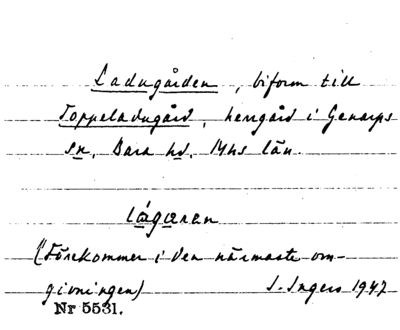 Ladugården, biform till
Toppeladugård, herrgård i Genarps
sn, Bara hd, Mhs län.
lágæran
(Förekommer i den närmaste om-
givningen) I. Ingers 1947
Nr 5531.